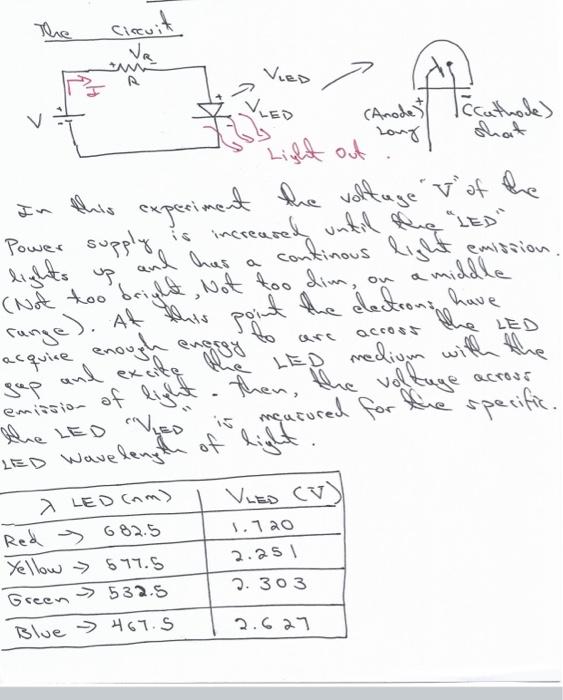 The Circuit
VR
+ -
R
I
V
+
-
+
-
VLED
VLED
Light out.
(Anode) +
Long
- (Cathode)
Shot
In this experiment the voltage "V" of the
Power supply is increased until the "LED"
lights up and has a continous light emission.
(Not too bright, Not too dim, on a middle
range). At this point the electrons have
acquire enough energy to arc across the LED
gap and excite the LED medium with the
emission of light. Then, the voltage across
the LED "VLED" is measured for the specific.
LED wavelength of light.
λ LED (nm) VLED (V)
Red → 682.5 1.720
Yellow → 577.5 2.251
Green → 532.5 2.303
Blue → 467.5 2.627